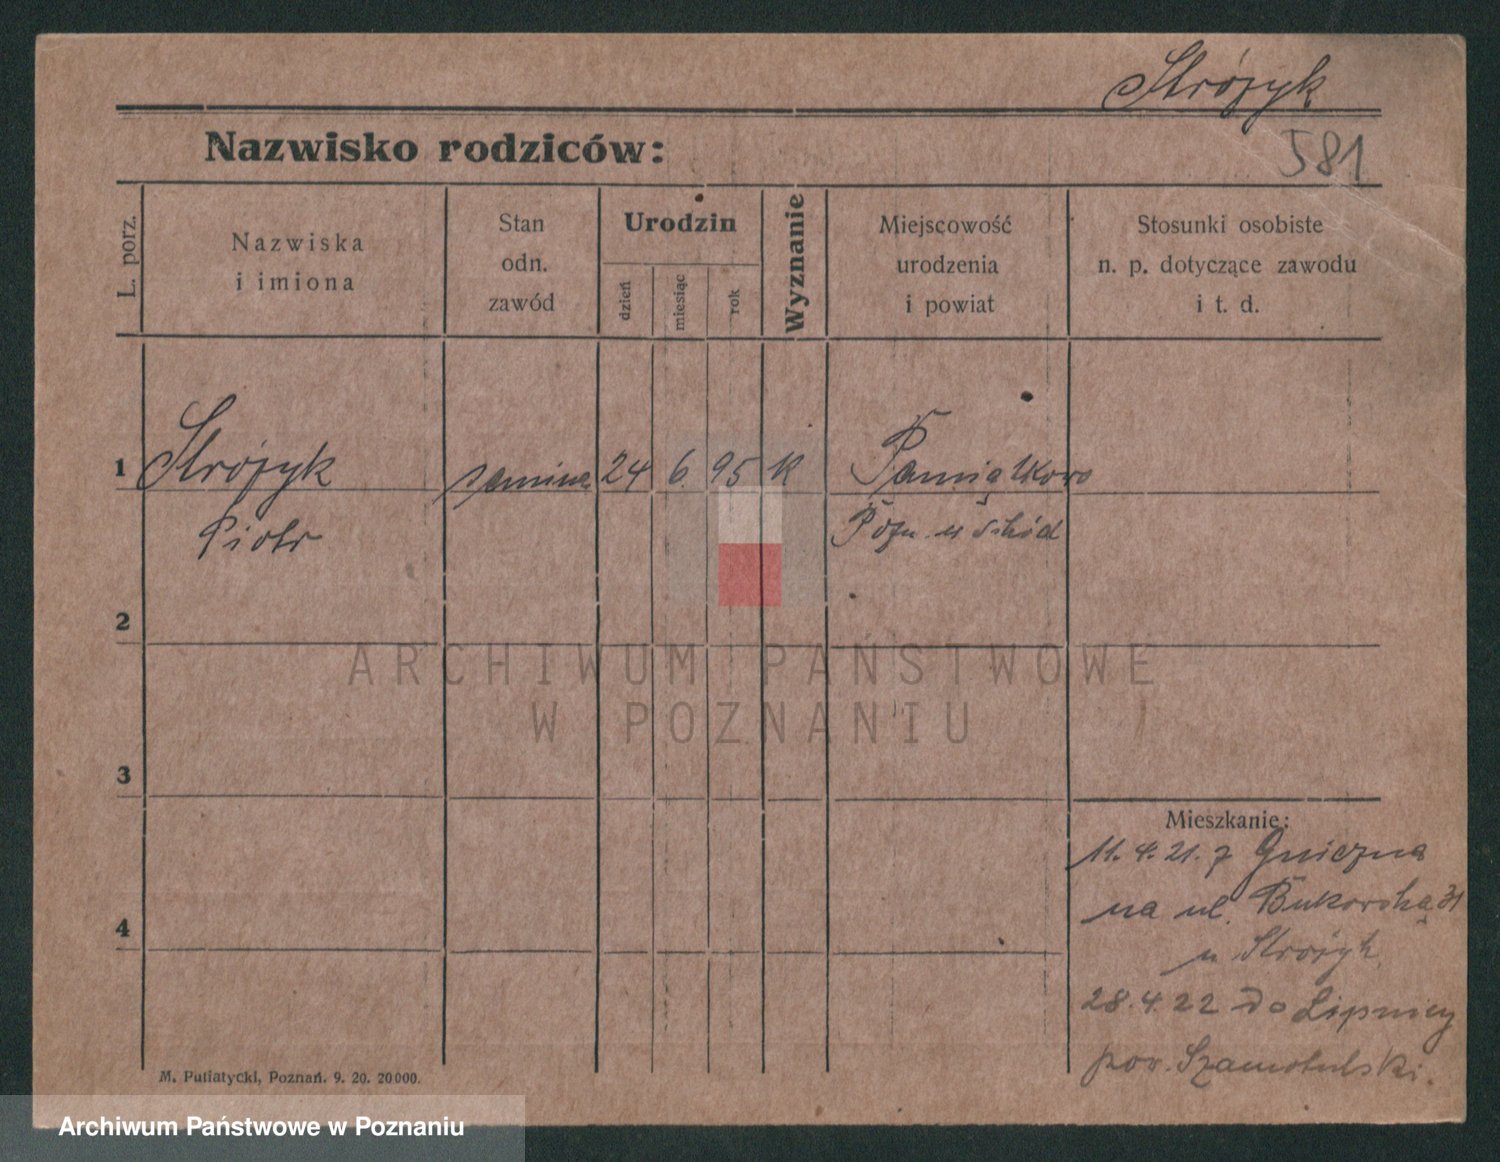 Stróżyk
Nazwisko rodziców:
581
L. porz.
Nazwiska
i imiona
Stan
odn.
zawód
Urodzin
dzień
miesiąc
rok
Wyznanie
Miejscowość
urodzenia
i powiat
Stosunki osobiste
n. p. dotyczące zawodu
i t. d.
1 Stróżyk 24 6. 95 K Pamiątkowo
Piotr Pozn. wschód
2
ARCHIWUM PAŃSTWOWE
W POZNANIU
3
Mieszkanie:
11.4.21. z Gniezna
na ul. Bukowską 31
u Stróżyk
4
28.4.22 do Lipnicy
pow. Szamotulski.
M. Putiatycki, Poznań. 9. 20. 20000.
Archiwum Państwowe w Poznaniu